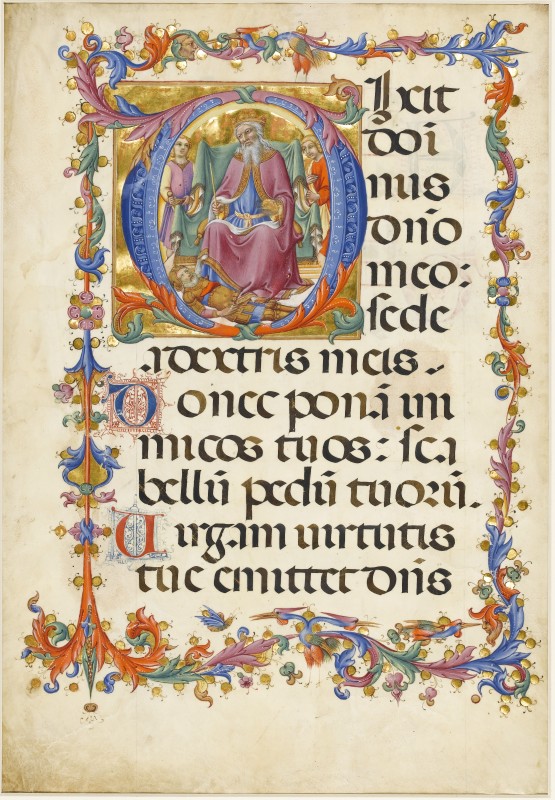 Dixit
domi
nus
dn̄o
meo:
sede
a dextris meis.
Donec ponā ini
micos tuos: sca
bellū pedū tuorū.
Virgam virtutis
tue emittet dn̄s